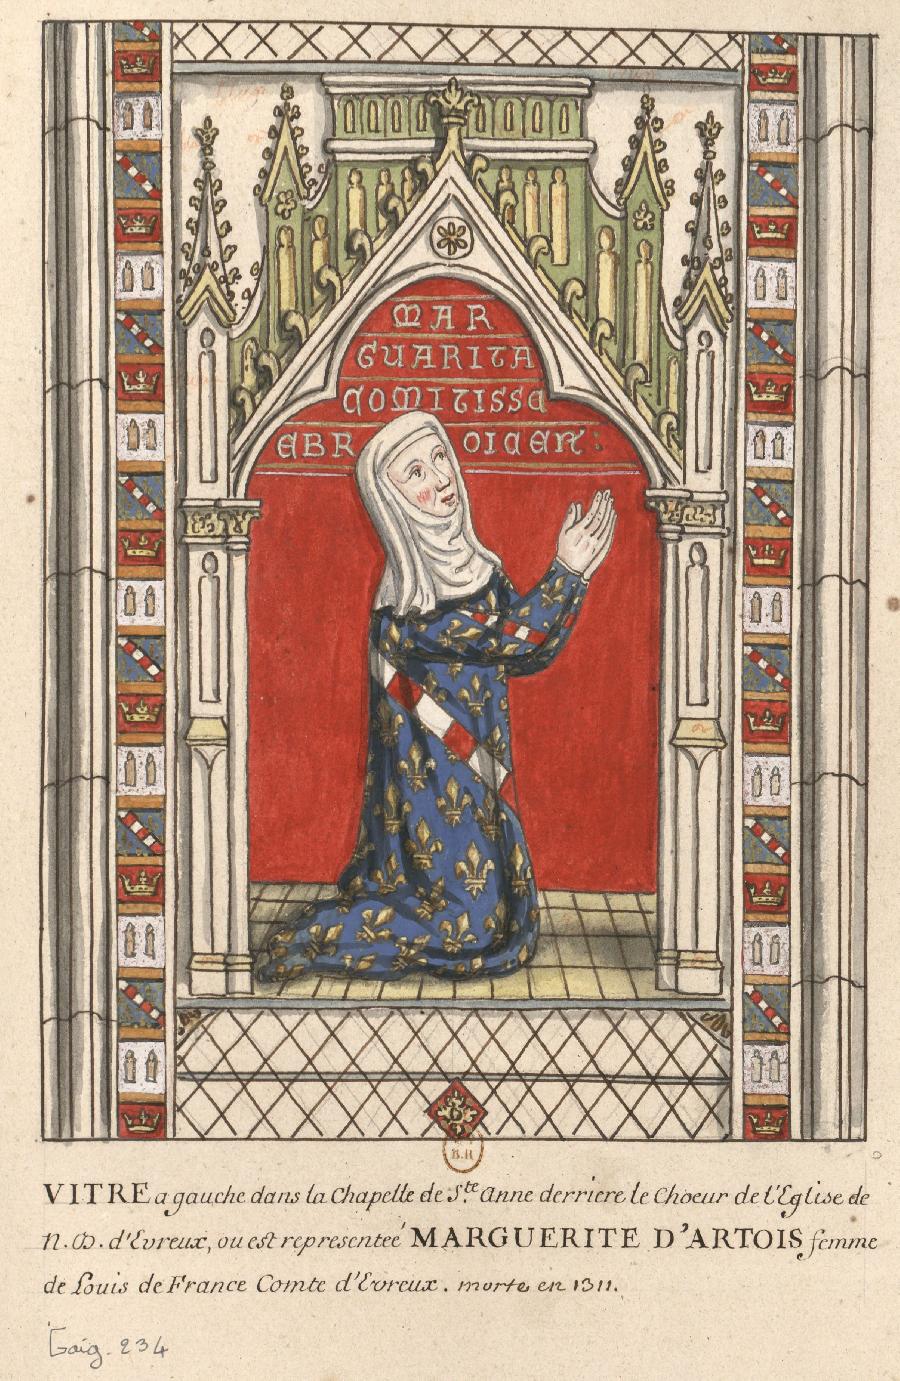 MAR
GUARITA
COMITISSE
EBROICEN:
B.R
VITRE a gauche dans la Chapelle de S.te Anne derriere le Choeur de l'Eglise de
N.D. d'Evreux, ou est representeé MARGUERITE D'ARTOIS femme
de Louis de France Comte d'Evreux. morte en 1311.
Gaig. 234